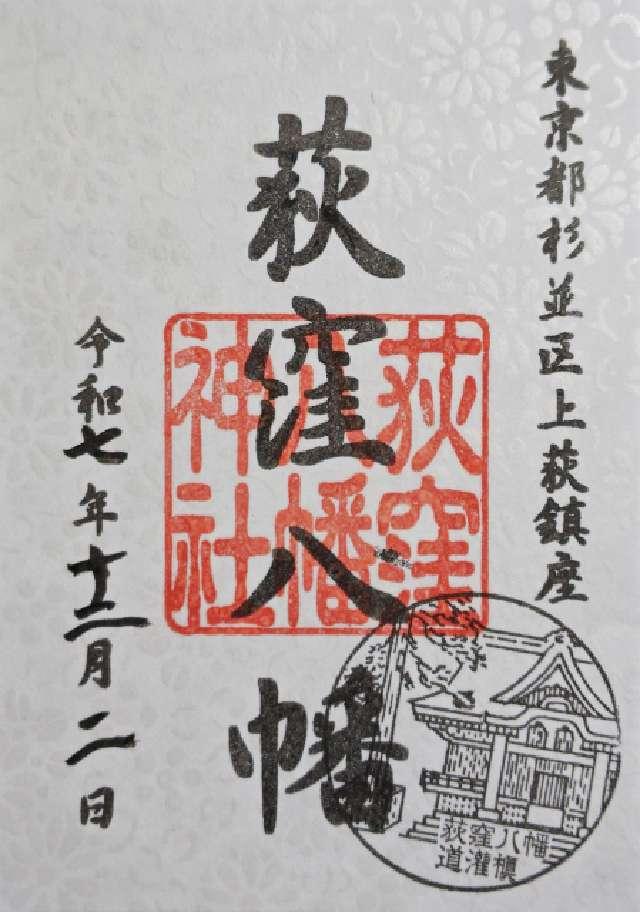 東京都杉並区上荻鎮座
荻窪八幡
荻窪
八幡
神社
令和七年十二月二日
荻窪八幡
道灌槇